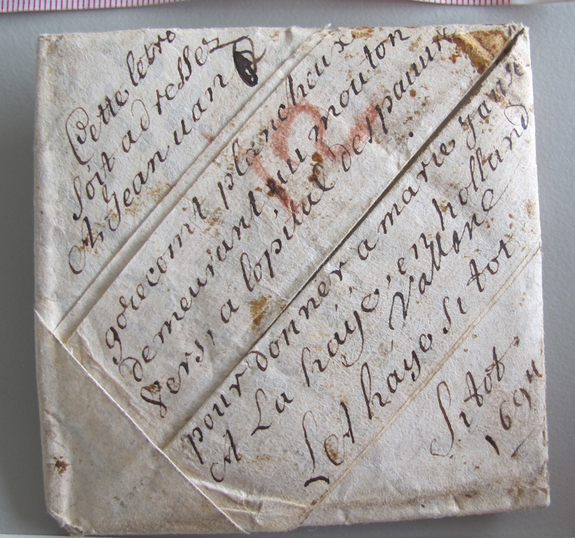 Cette letre
soit adresser
A Jean uan
gorecomt plancheux
demeurant au mouton
vers, a lopital des pauure
pour donner a marie
A La haije, en holland
Vallone
Let haye si tot
Sitot.
1694
12